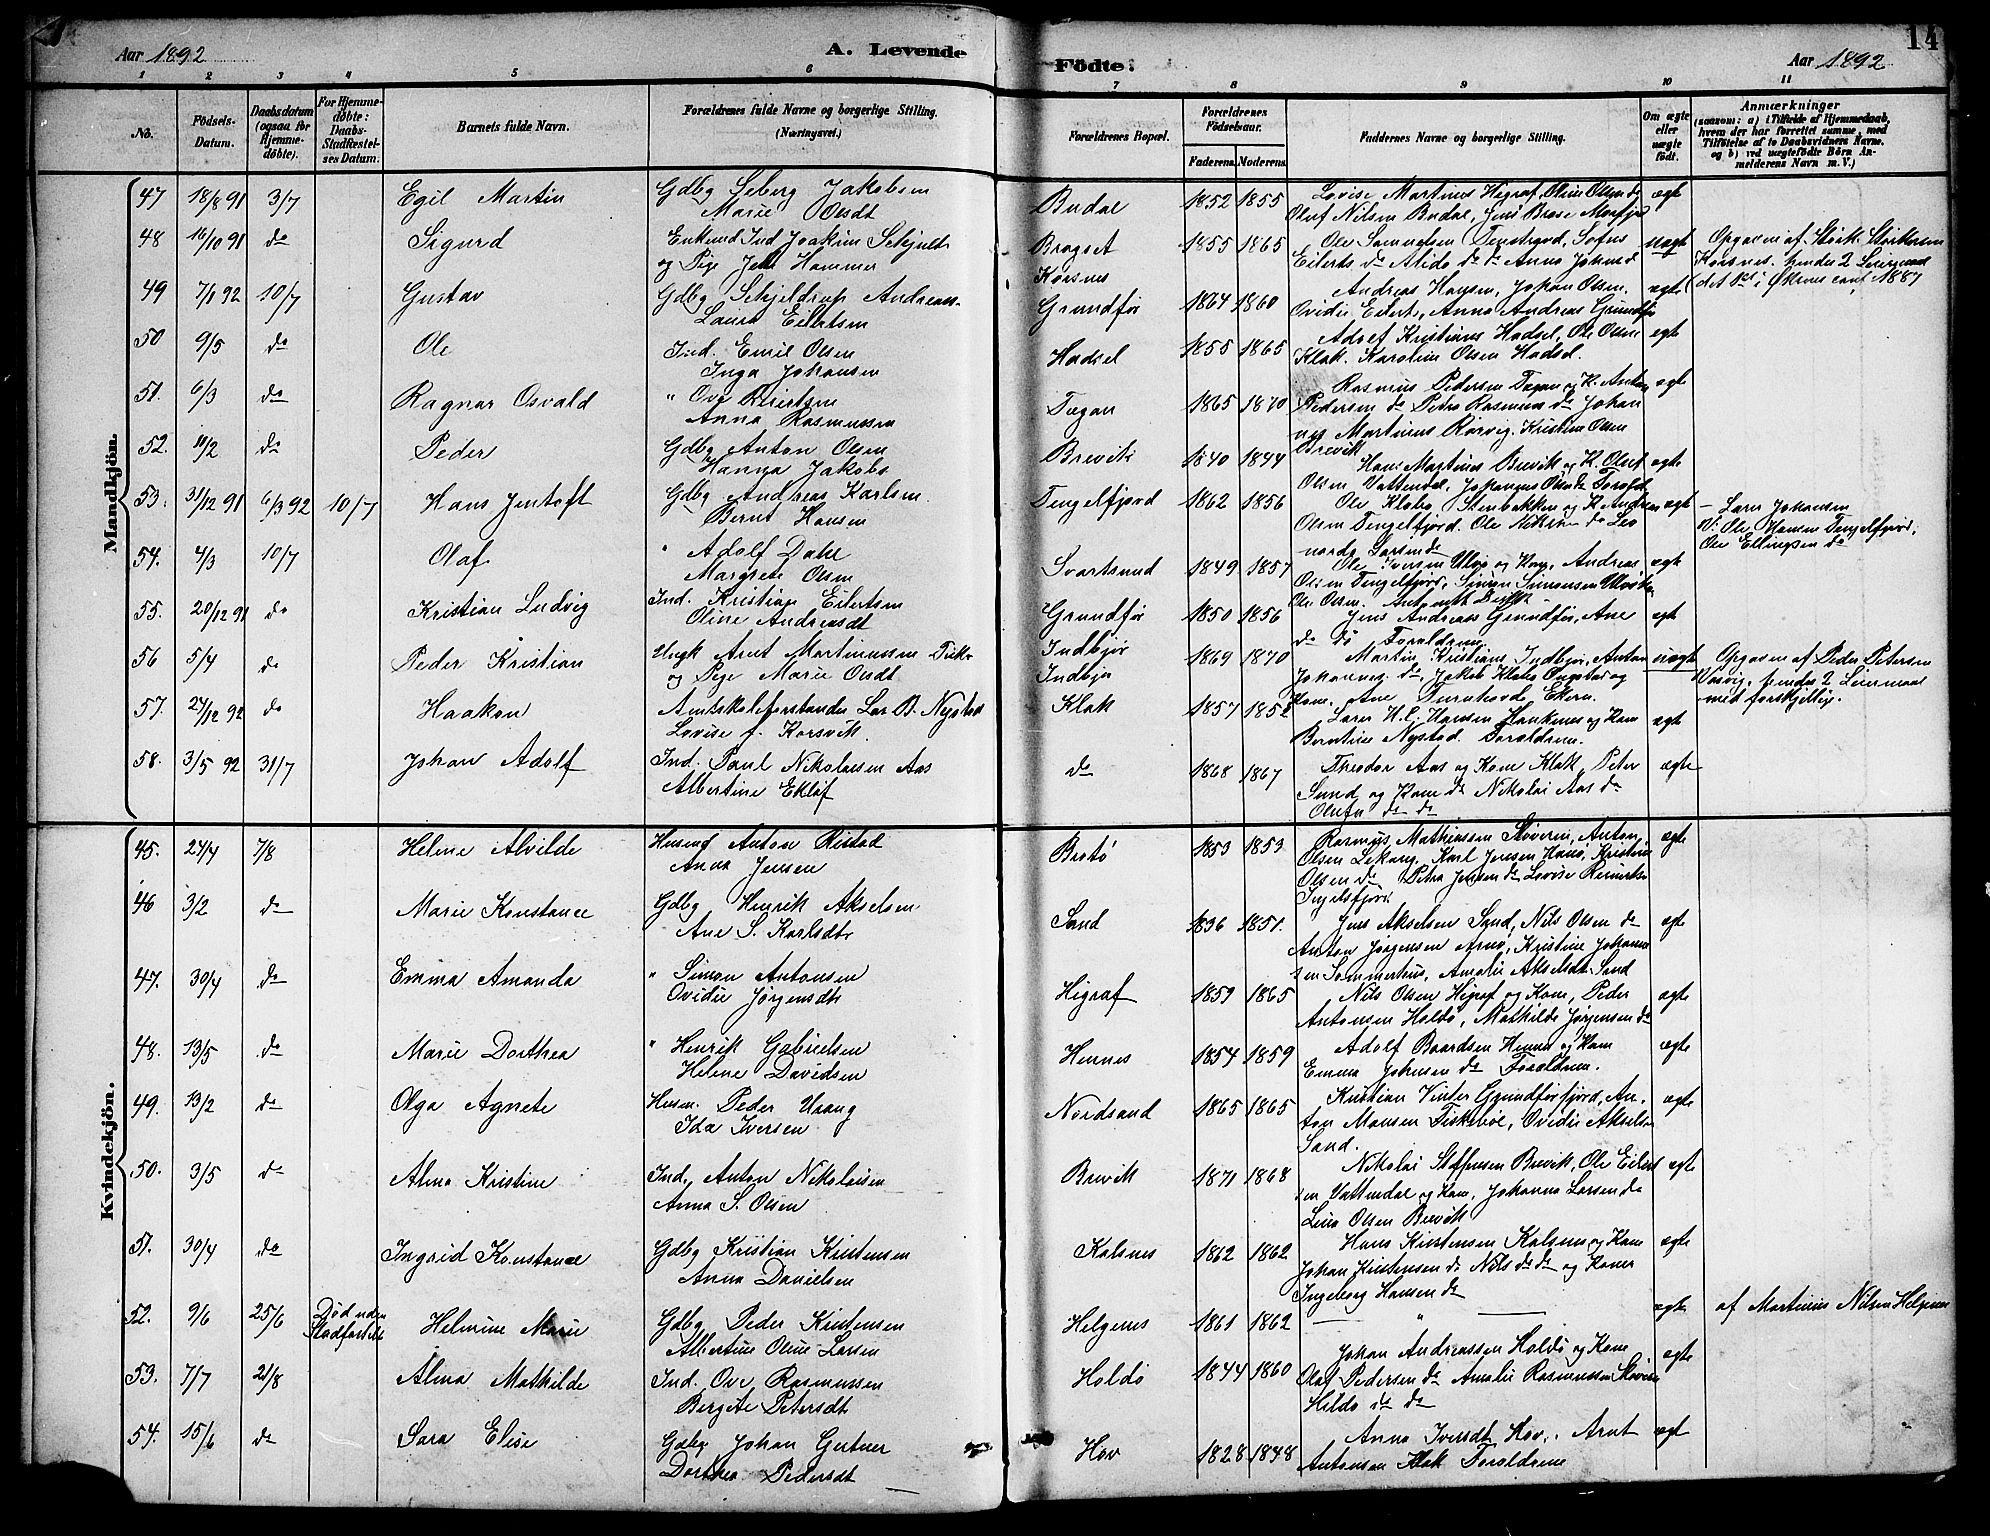 Aar 1892
A. Levende
Födte.
Aar 1892
14
1 2 3 4 5 6 7 8 9 10 11
No.
Födsels-Datum.
Daabsdatum (ogsaa for Hjemmedöbte).
For Hjemmedöbte: Daabs-Stadfæstelses Datum.
Barnets fulde Navn.
Forældrenes fulde Navne og borgerlige Stilling. (Næringsvei.)
Forældrenes Bopæl.
Forældrenes Födselsaar.
Faderens. Moderens.
Faddernes Navne og borgerlige Stilling.
Om ægte eller uægte födt.
Anmærkninger (saasom: a) i Tilfælde af Hjemmedaab, hvem der har forrettet samme, med Tilföielse af to Daabsvidners Navne. og b) ved uægtefödte Börn Anmelderens Navn m. V.)
Mandkjön.
47 18/8 91 3/7 Egil Martin Gdbg Seberg Jakobsen Budal 1852 1855 Lovise Martines Higraf, Oline Olsen do ægte
Marie Olsdt Oluf Nilsen Budal, Jens
48 16/10 91 do Sigurd Enkemd Ind Joakim Brogset 1855 1865 Ole Samuelsen uægte Opgaven af
og Pige Hammer Korsnes Eilerts do do Anna Korsnes. hendes 2 1887
49 7/1 92 10/7 Gustav Gdbg Schjeldrup Andreas- Grundfør 1864 1860 Andreas Hansen, Johan Olsen. ægte
Laura Eilertsen Ovidie Eilerts, Anna Andreas Grundfør
50 9/5 do Ole Ind. Emil Olsen Hadsel 1855 1865 Adolf Kristians Hadsel, Ole Olsen ægte
Inga Johansen Klak. Karoline Olsen Hadsel.
51. 6/3 do Ragnar Osvald " Ove Tøgan 1865 1870 Rasmus Pedersen Tøgan og K. Anton ægte
Anna Rasmussen Pedersen do Petra Rasmus do Johan
nes Martinus Rørvig. Kristine Olsen
52. 11/2 do Peder Gdbg Anton Olsen Brevik 1840 1844 Brevik
Hanna Jakobs Hans Martinus Brevik og K. ægte
53. 31/12 91 6/3 92 10/7 Hans Jentoft Gdbg Andreas Karlsen. Tengelfjord 1862 1856 Olsen Vattendal, Johannes ægte – Lars Johansen
Bernt Hansen Olsen Tengelfjord. Ole V: Ole Hansen Tengelfjord.
54. 4/3 10/7 Olaf " Adolf Dahl Svartsund 1849 1857 Ole Iversen og Kone, Andreas ægte Ole Ellingsen do
Margrete Olsen Olsen Tengelfjord, Simon Simonsen
55. 20/12 91 do Kristian Ludvig Ind. Kristian Eilertsen Grundfør 1850 1856 Jens Andreas Grundfør, Ane ægte
Oline Andreasdt do do Foraldrene
56 5/4 do Peder Kristian Ungk Arnt Martinussen Indbjør 1869 1870 Martin Kristians Indbjør, Anton uægte Opgaven af Peder Petersen
og Pige Marie Olsdt Indbjør Johannes do, Jakob hendes 2 Leiermaal
57. 27/12 92 do Haakon Amtskoleforstander Lars B. Nystad Klak 1857 1852 Kone, Ane med forskjellig.
Lovise f. Korsvik. Lars H. C. Hansen Hanknes og Kone ægte
Berntine Nystad. Foraldrene.
58. 3/5 92 31/7 Johan Adolf Ind. Paul Nikolaisen Aas do 1868 1867 Theodor Aas og Kone Klak, Peter ægte
Albertine Eklof Sund og Kone do Nikolai Aas do
do do
Kvindekjön.
45. 24/4 7/8 Helene Alvilde Husmd Anton Ristad Brotø 1853 1853 Rasmus Mathiassen Stoverin, Anton ægte
Anna Jensen Olsen Lekang, Karl Jensen Hanø, Kristine
Olsen do Petra Jensen do Lovise
Ingelsfjord
46 3/2 do Marie Konstance Gdbg Henrik Akselsen Sand 1836 1851. Jens Akselsen Sand, Nils Olsen do ægte
Ane S. Karlsdtr Anton Jørgensen Arnø, Kristine Johanne
sen Sommerhus, Amalie Akselsdt. Sand
47. 30/4 do Emma Amanda " Simon Antonsen Higraf 1859 1865 Nils Olsen Higraf og Kone, Peder ægte
Ovidie Jørgensdt Antonsen Holdø, Mathilde Jørgensen do
48. 13/5 do Marie Dorthea " Henrik Gabrielsen Hennes 1854 1859 Adolf Baardsen Hennes og Kone ægte
Helene Davidsen Emma Johnsen do Foraldrene.
49. 13/2 do Olga Agnete Husm. Peder Uvaag Nordsand 1865 1865 Kristian Vinter Grundførfjord, An- ægte
Ida Iversen ton Monsen Fiskebøl, Ovidie Akselsen
Sand.
50. 3/5 do Alma Kristine Ind. Anton Nikolaisen Brevik 1871 1868 Nikolai Steffensen Brevik, Ole Eilert ægte
Anna S. Olsen sen Vattendal og Kone, Johanna Larsen do
Lina Olsen Brevik
51. 30/4 do Ingrid Konstance Gdbg Kristian Kristensen Kalsnes 1862 1862 Hans Kristensen Kalsnes og Kone ægte
Anna Danielsen Johan Kristensen do Nils do do og Koner
Ingeborg Hansen do
52. 9/6 25/6 Død uden Stadfæstelse Helmine Marie Gdbg Peder Kristensen Helgenes 1861 1862 — " — ægte af Martinus Nilsen Helgenes
Albertine Oline Larsen
53. 7/7 21/8 Alma Mathilde Ind. Ove Rasmussen Holdø 1844 1860 Johan Andreassen Holdø og Kone ægte
Bergete Petersdt Olaf Pedersen do Amalie Rasmussen
Hildo do do
54. 15/6 do Sara Elise Gdbg Johan Hov 1828 1848 Anna Iversdt Hov. Arnt ægte
Dorthea Pedersdt Antonsen Klak Foraldrene